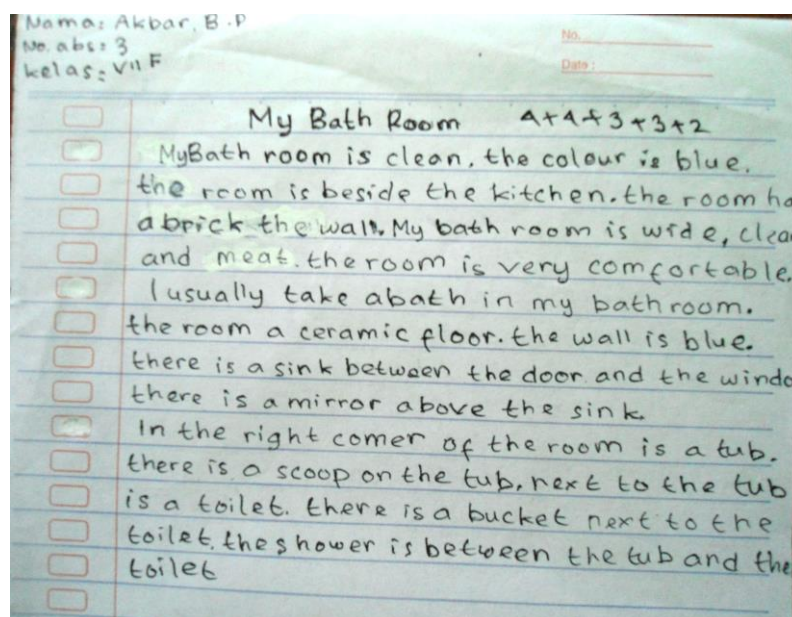 Nama: Akbar. B.P
No. abs: 3
kelas: VII F
No.
Date:
My Bath Room 4+4+3+3+2
MyBath room is clean. the colour is blue.
the room is beside the kitchen. the room ha
a brick the wall. My bath room is wide, clea
and meat. the room is very comfortable.
I usually take abath in my bath room.
the room a ceramic floor. the wall is blue.
there is a sink between the door and the windo
there is a mirror above the sink.
In the right comer of the room is a tub.
there is a scoop on the tub, next to the tub
is a toilet. there is a bucket next to the
toilet. the shower is between the tub and the
toilet